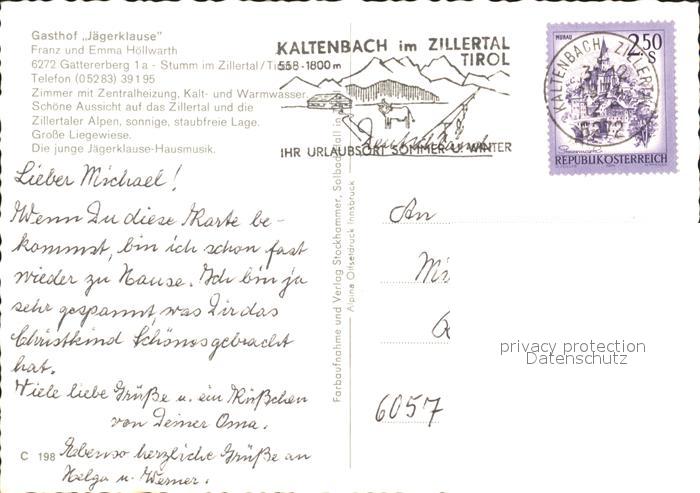 Gasthof „Jägerklause"
Franz und Emma Höllwarth
6272 Gattererberg 1a - Stumm im Zillertal / Tirol
Telefon (05283) 39195
Zimmer mit Zentralheizung, Kalt- und Warmwasser.
Schöne Aussicht auf das Zillertal und die
Zillertaler Alpen, sonnige, staubfreie Lage.
Große Liegewiese.
Die junge Jägerklause-Hausmusik.
KALTENBACH im ZILLERTAL
TIROL
558-1800 m
IHR URLAUBSORT SOMMER U. WINTER
MURAU
2.50
S
KALTENBACH, ZILLERTAL
REPUBLIK ÖSTERREICH
Lieber Michael!
Wenn Du diese Karte be-
kommst, bin ich schon fast
wieder zu Hause. Ich bin ja
sehr gespannt, was Dir das
Christkind Schönes gebracht
hat.
Viele liebe Grüße u. ein Küßchen
von Deiner Oma.
Ebenso herzliche Grüße an
Helga u. Werner.
C 198
Farbaufnahme und Verlag Stockhammer, Solbad Hall in
Alpina Offsetdruck Innsbruck
An
Mi
6057
privacy protection
Datenschutz